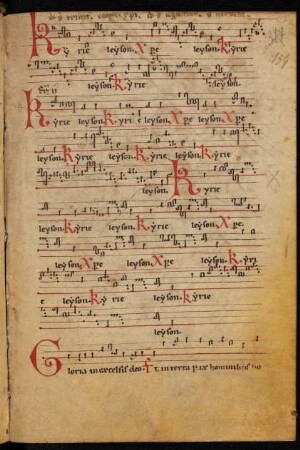 Ky rie leyson. Xpe leyson. Kyrie
leyson. Kyrie leyson.
Kyrie leyson. Kyri e leyson. Xpe leyson. Xpe
leyson. Kyrie leyson. Kyrie leyson. Kyrie
leyson. Kyrie
leyson. Kyrie leyson. Kyrie leyson. Xpe.
leyson. Xpe leyson. Xpe leyson. Kyri
e leyson. Ky rie leyson. kyrie
leyson.
Gloria in excelsis deo. Et in terra pax hominibus bo